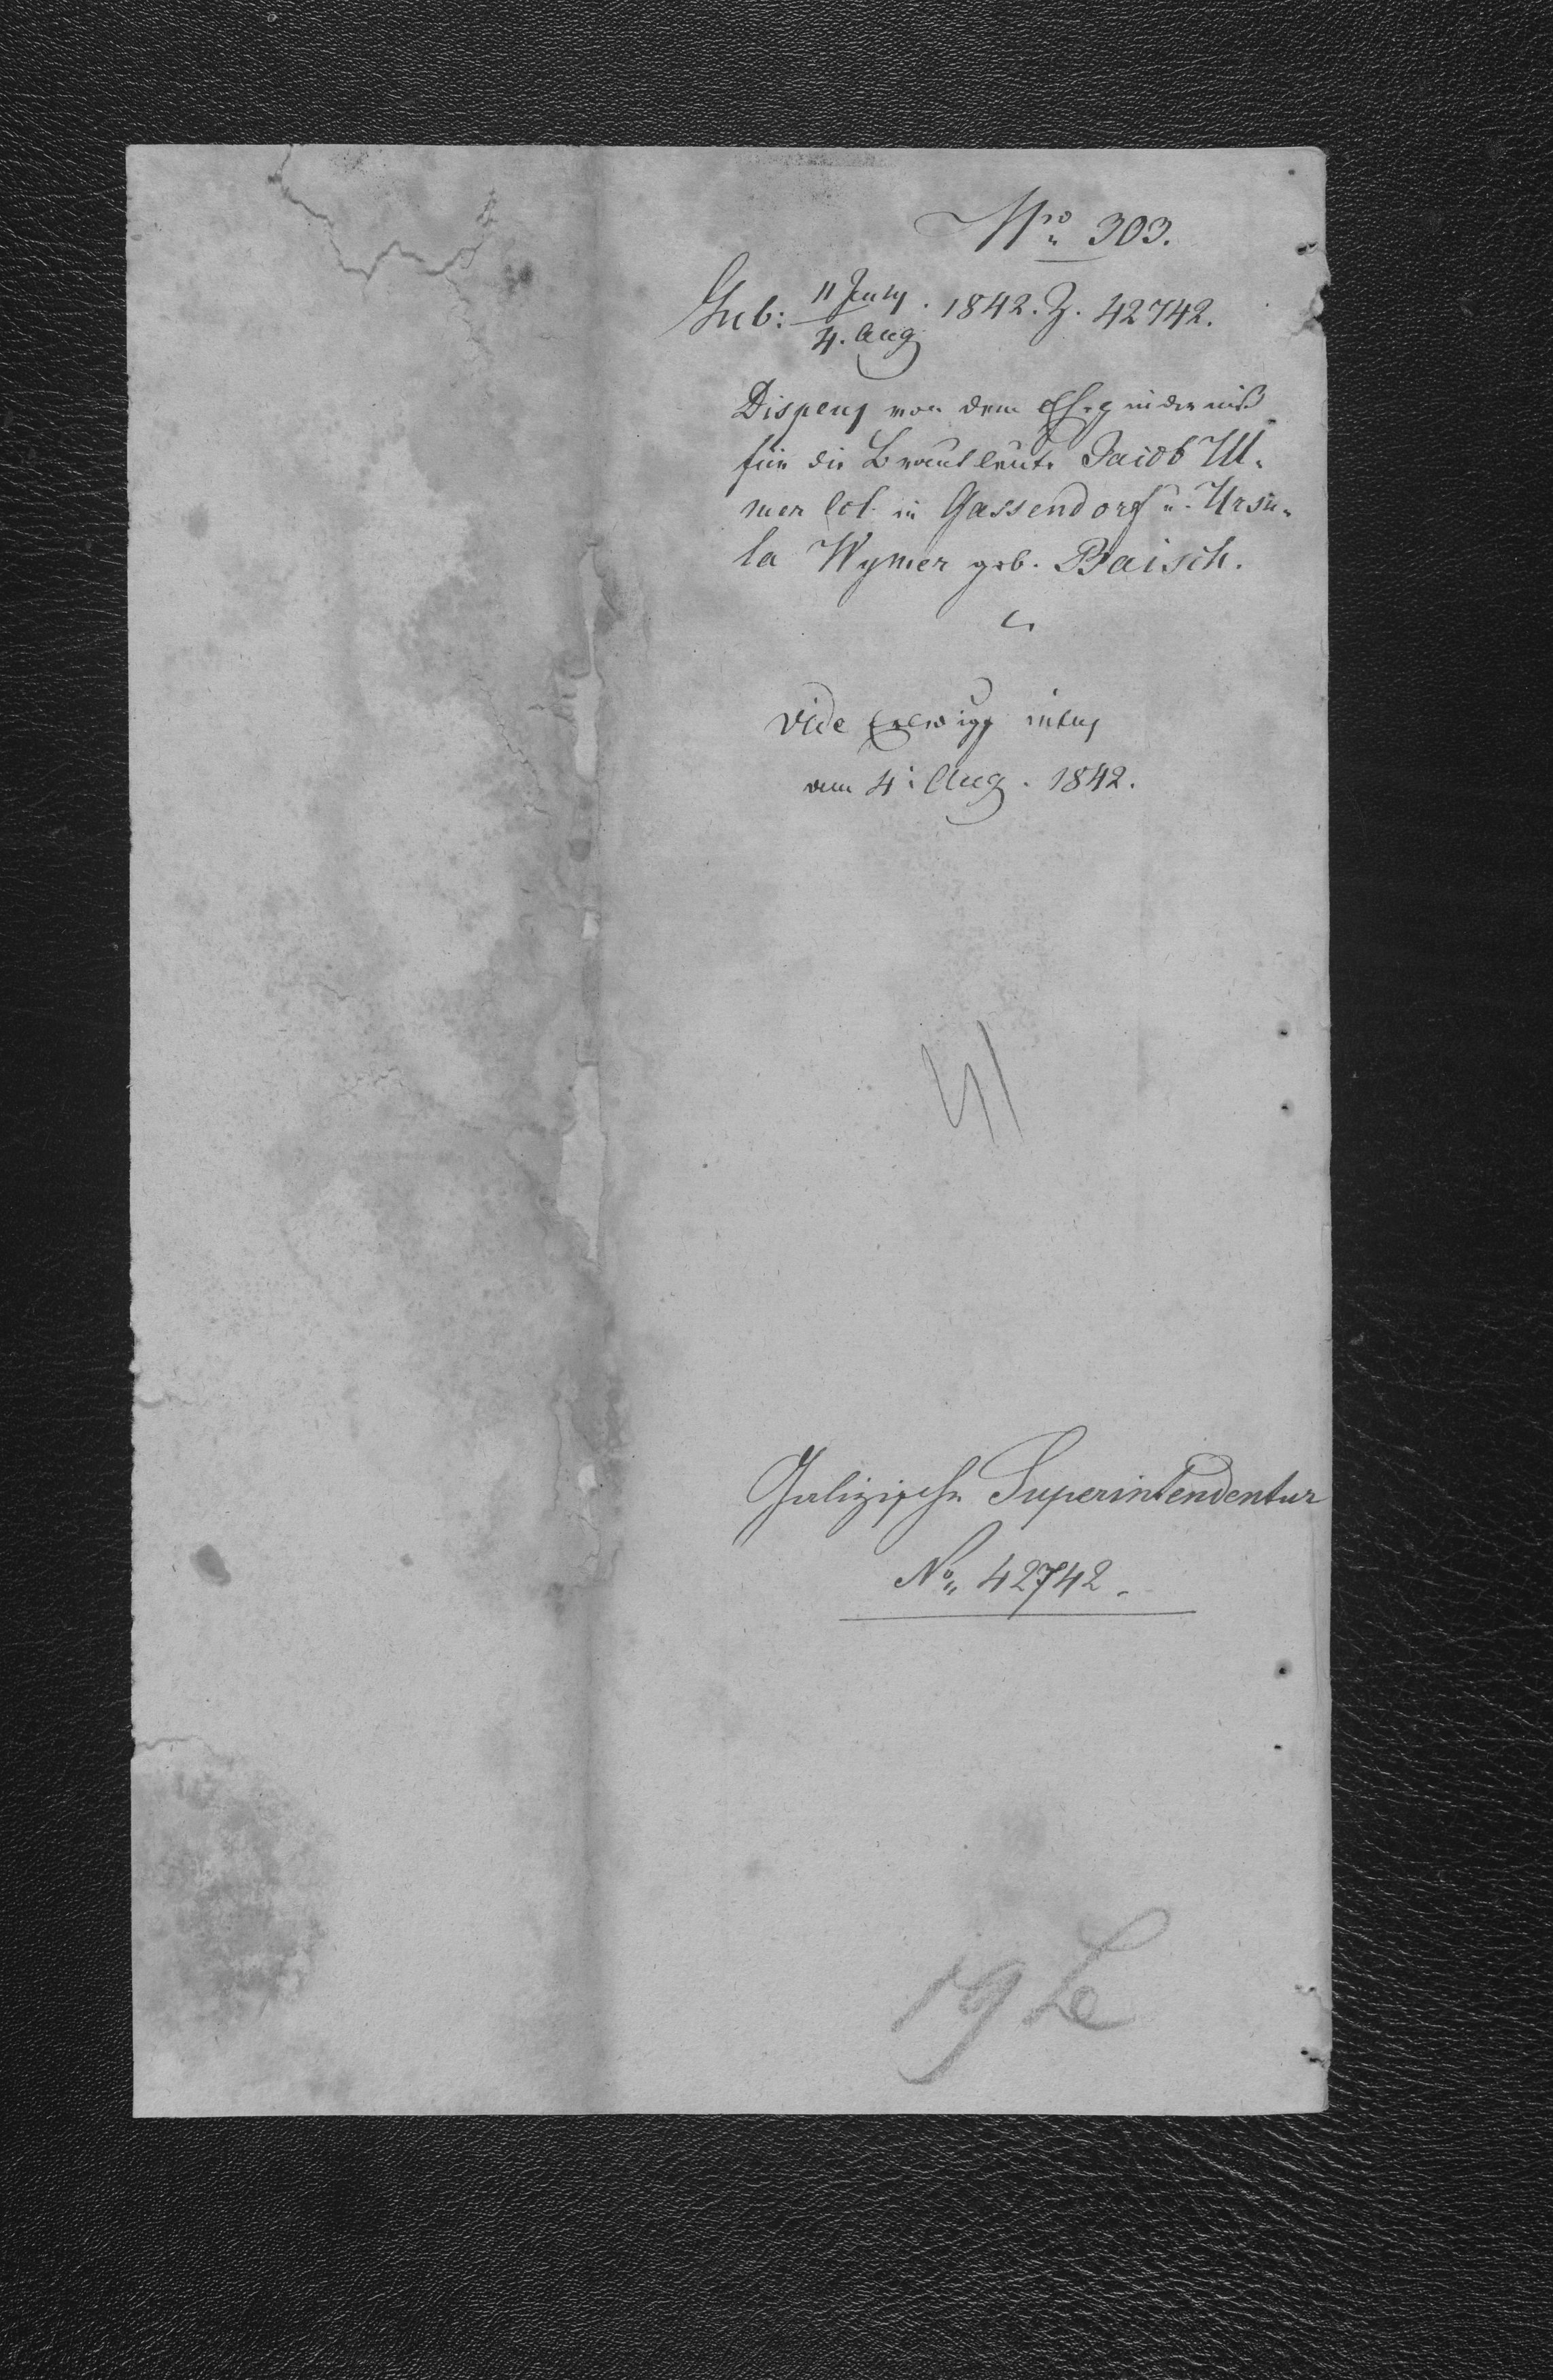 Nro 303.
Gub: 11 July / 4. Aug. 1842. Z. 42742.
Dispens von dem Ehehinderniß
für die Brautleute Jacob Ul-
mer Col. in Gassendorf u. Ursu-
la Wymer geb. Baisch.
vide intus
vom 4: Aug. 1842.
41
Galizische Superintendentur
No. 42742.
19 Le